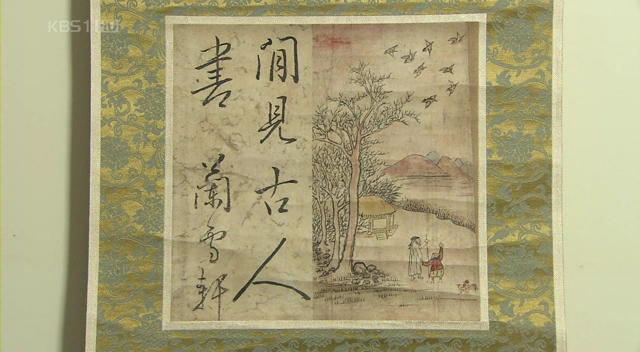 KBS1
閒見古人
書 蘭雪軒